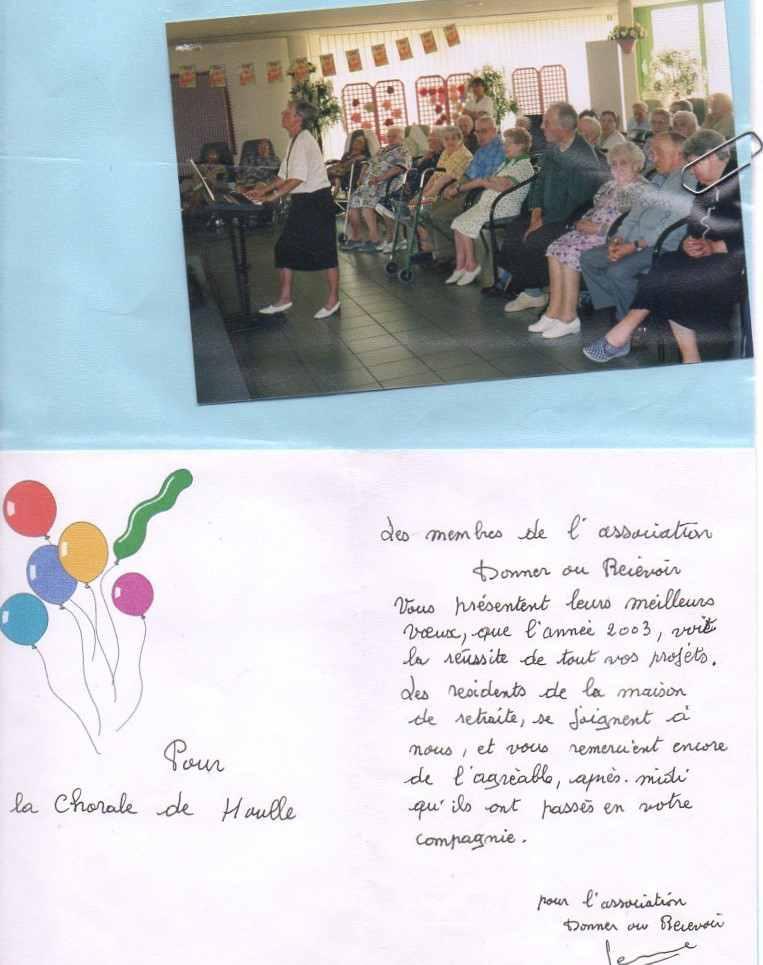 Pour
la Chorale de Houlle
Les membres de l'association
Donner ou Recevoir
Vous présentent leurs meilleurs
vœux, que l'année 2003, voit
la réussite de tout vos projets.
Les residents de la maison
de retraite, se joignent à
nous, et vous remercient encore
de l'agréable, après-midi
qu'ils ont passés en votre
compagnie.
pour l'association
Donner ou Recevoir